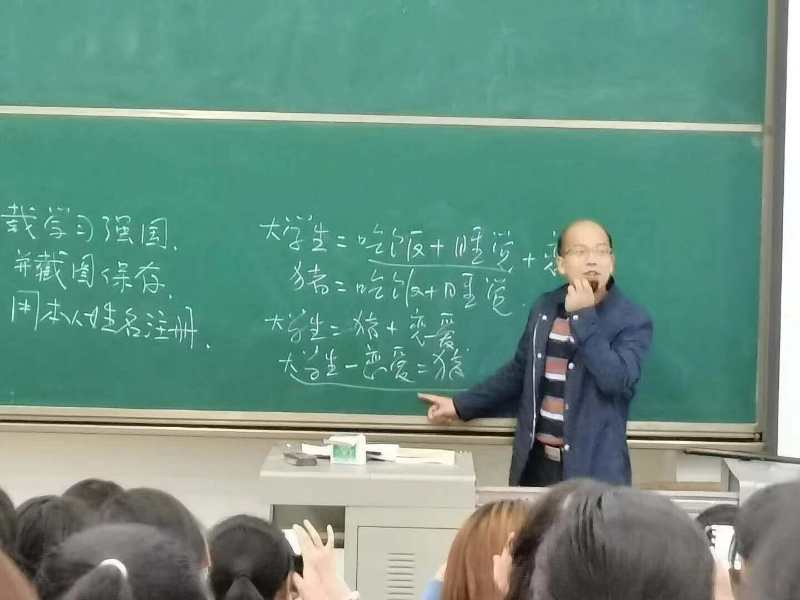 载学习强国.
并截图保存.
用本人姓名注册.
大学生=吃饭+睡觉+恋
猪=吃饭+睡觉.
大学生=猪+恋爱
大学生-恋爱=猪